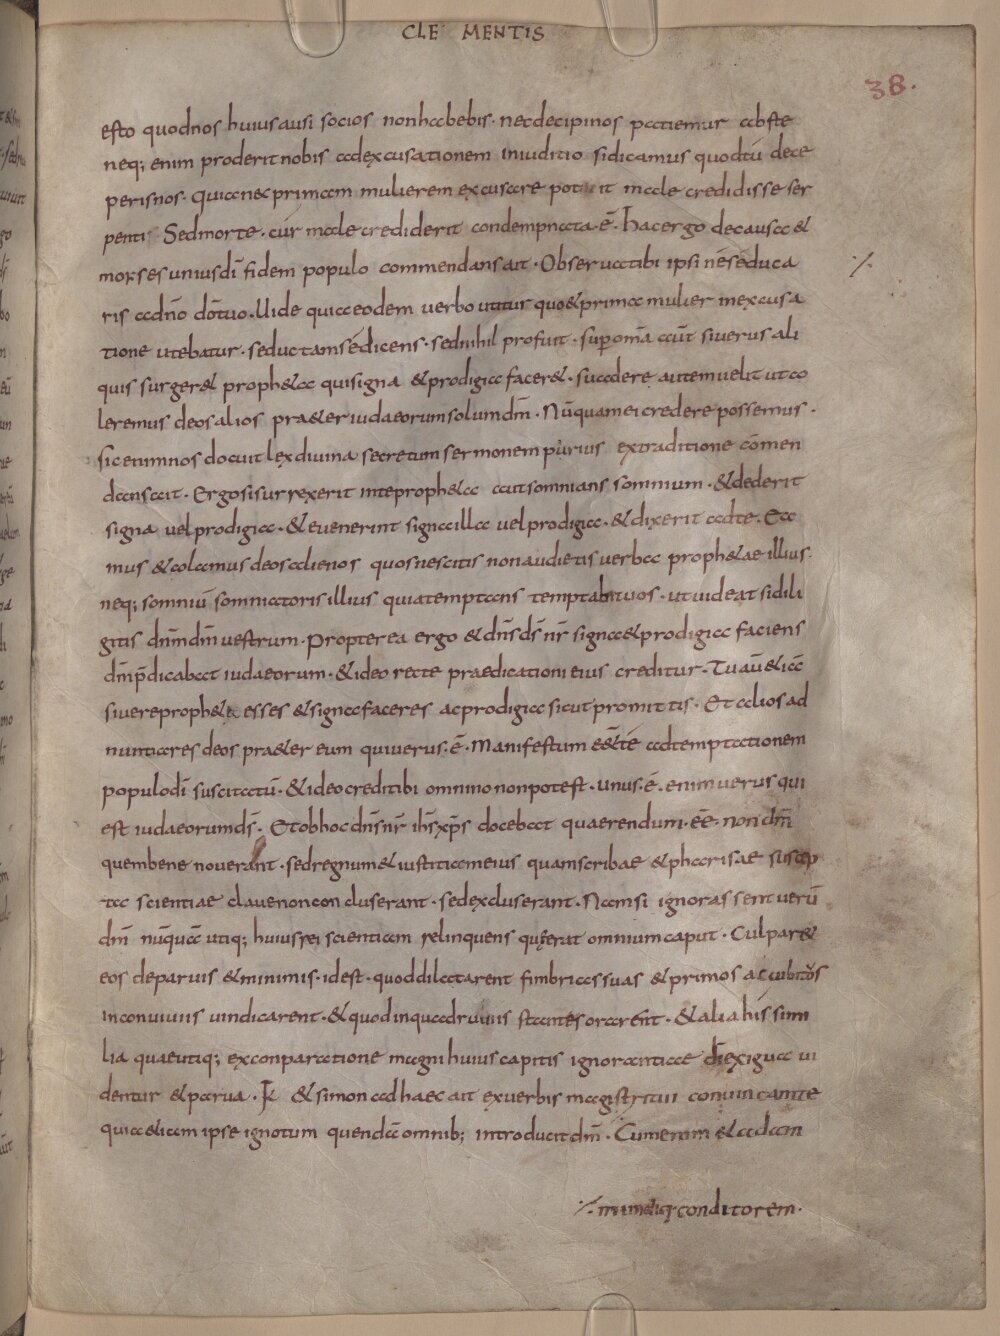 CLE MENTIS
38.
esto quod nos huius ausi socios non habebis · nec decipi nos patiemur abste
neq; enim proderit nobis ad excusationem in iuditio si dicamus quod tū dece
peris nos · quia nec primam mulierem excusare potuit male credidisse ser
penti Sed morte · cur male crediderit condempnata · ē · hac ergo de causa &
morses unius dī fidem populo commendans ait · Observa tibi ipsi ne seduca
ris a dn̄o dō tuo · Uide quia eodem uerbo utitur quo & prima mulier in excusa
tione utebatur · seductam se dicens · sed nihil profuit · sup om̄a aūt si uerus ali
quis surger& proph&a qui signa & prodigia facer& · suadere autem uelit ut co
leremus deos alios pra&er iudaeorum solum dm̄ · Nūquam ei credere possemus ·
sic enim nos docuit lex diuina secretum sermonem purius ex traditione cōmen
dans ait · Ergo si surrexerit in te proph&a aut somnians somnium · & dederit
signa uel prodigia · & euenerint signa illa uel prodigia · & dixerit ad te · Ea
mus & colamus deos alienos quos nescitis non audietis uerba proph&ae illius ·
neq; somniū somniatoris illius quia temptans temptabit uos · ut uideat si dili
gitis dnm̄ dm̄ uestrum · Propterea ergo & dn̄s ds̄ nr̄ signa & prodigia faciens
dm̄ p̄dicabat iudaeorum · & ideo recte praedicationi eius creditur · Tu aū & iā
si uere proph&a esses & signa faceres ac prodigia sicut promittis · Et alios ad
nuntiares deos pra&er eum qui uerus · ē · Manifestum e&̄ te ad temptationem
populo dī suscitatū · & ideo credi tibi omnino non potest · unus · ē · enim uerus qui
est iudaeorum ds̄ · Et ob hoc dn̄s nr̄ ihs̄ xps̄ docebat quaerendum · eē · non dm̄
quem bene nouerant · sed regnum & iustitiam eius quam scribae & pharisae suscep
ta scientiae claue non concluserant · sed excluserant · Nam si ignorassent uerū
dm̄ nūquā utiq; huius rei scientiam relinquens quererat omnium caput · Culpar&
eos de paruis & minimis · id est · quod dilatarent fimbrias suas & primos accubitos
in conuiuiis uindicarent · & quod in quadruuiis stantes orarent · & alia his simi
lia quae utiq; ex conparatione magni huius capitis ignorantiae di exigua ui
dentur & parua · K & simon ad haec ait ex uerbis magistri tui conuincam te
quia & iam ipse ignotum quendā omnib; introducit dm̄ · Cum enim & adam
·/· mundiq; conditorem ·